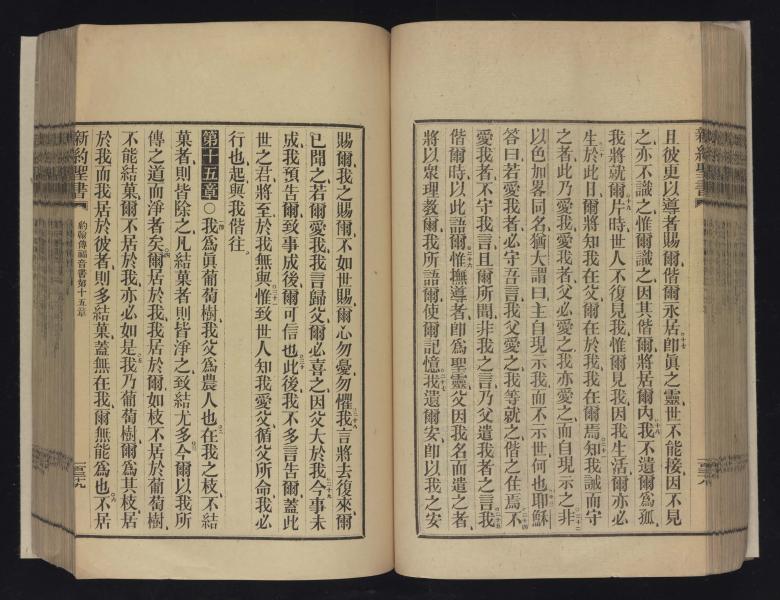 新約聖書
且彼更以導者賜爾偕爾永居卽眞之靈世不能接因不見
之亦不識之惟爾識之因其偕爾將居爾內我不遺爾爲孤
我將就爾片時世人不復見我惟爾見我因我生活爾亦必
生於此日爾將知我在父爾在於我我在爾焉知我誡而守
之者此乃愛我愛我者父必愛之我亦愛之而自現示之非
以色加畧同名猶大謂曰主自現示我而不示世何也耶穌
答曰若愛我者必守吾言我父愛之我等就之偕之住焉不
愛我者不守我言且爾所聞非我之言乃父遣我者之言我
偕爾時以此語爾惟撫導者卽爲聖靈父因我名而遣之者
將以衆理教爾我所語爾使爾記憶我遺爾安卽以我之安
賜爾我之賜爾不如世賜爾心勿憂勿懼我言將去復來爾
已聞之若爾愛我我言歸父爾必喜之因父大於我今事未
成我預告爾致事成後爾可信也此後我不多言告爾蓋此
世之君將至於我無與惟致世人知我愛父循父所命我必
行也起與我偕往
第十五章○我爲眞葡萄樹我父爲農人也在我之枝不結
菓者則皆除之凡結菓者則皆淨之致結尤多今爾以我所
傳之道而淨者矣爾居於我我居於爾如枝不居於葡萄樹
不能結菓爾不居於我亦必如是我乃葡萄樹爾爲其枝居
於我而我居於彼者則多結菓蓋無在我爾無能爲也不居
新約聖書
約翰傳福音書第十五章